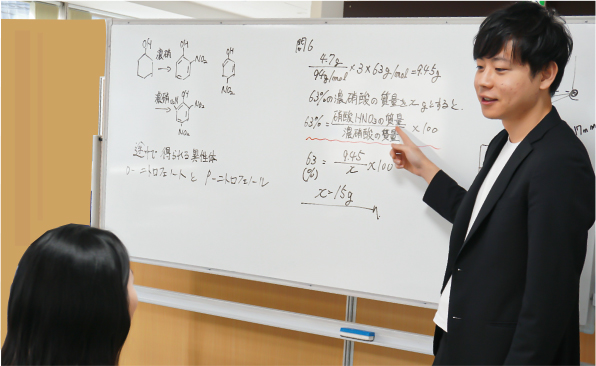 OH OH OH
濃硝 → NO₂
濃硝 → NO₂
途中で得られる異性体
o-ニトロフェノールと p-ニトロフェノール
問6
4.7g / 94g/mol × 3 × 63g/mol = 9.45g
63%の濃硝酸の質量を x gとすると、
63% = 硝酸HNO₃の質量 / 濃硝酸の質量 × 100
63 (%) = 9.45 / x × 100
x = 15g